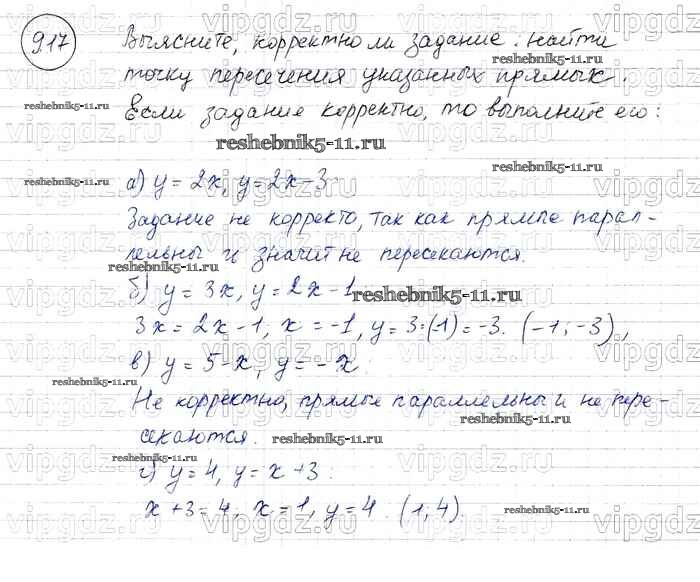 917
Выясните, корректно ли задание: найти
точку пересечения указанных прямых.
Если задание корректно, то выполните его:
а) y = 2x, y = 2x - 3
Задание не корректо, так как прямые парал-
лельны и значит не пересекаются.
б) y = 3x, y = 2x - 1
3x = 2x - 1; x = -1, y = 3·(-1) = -3. (-1; -3),
в) y = 5 - x, y = -x:
Не корректно, прямые параллельны и не пере-
секаются.
г) y = 4, y = x + 3.
x + 3 = 4, x = 1, y = 4. (1, 4).
reshebnik5-11.ru
vipgdz.ru